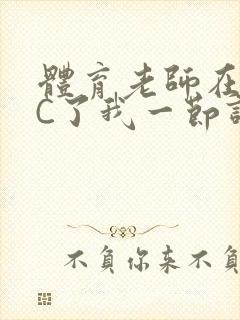 體育老師在
C了我一節
不負你来不負